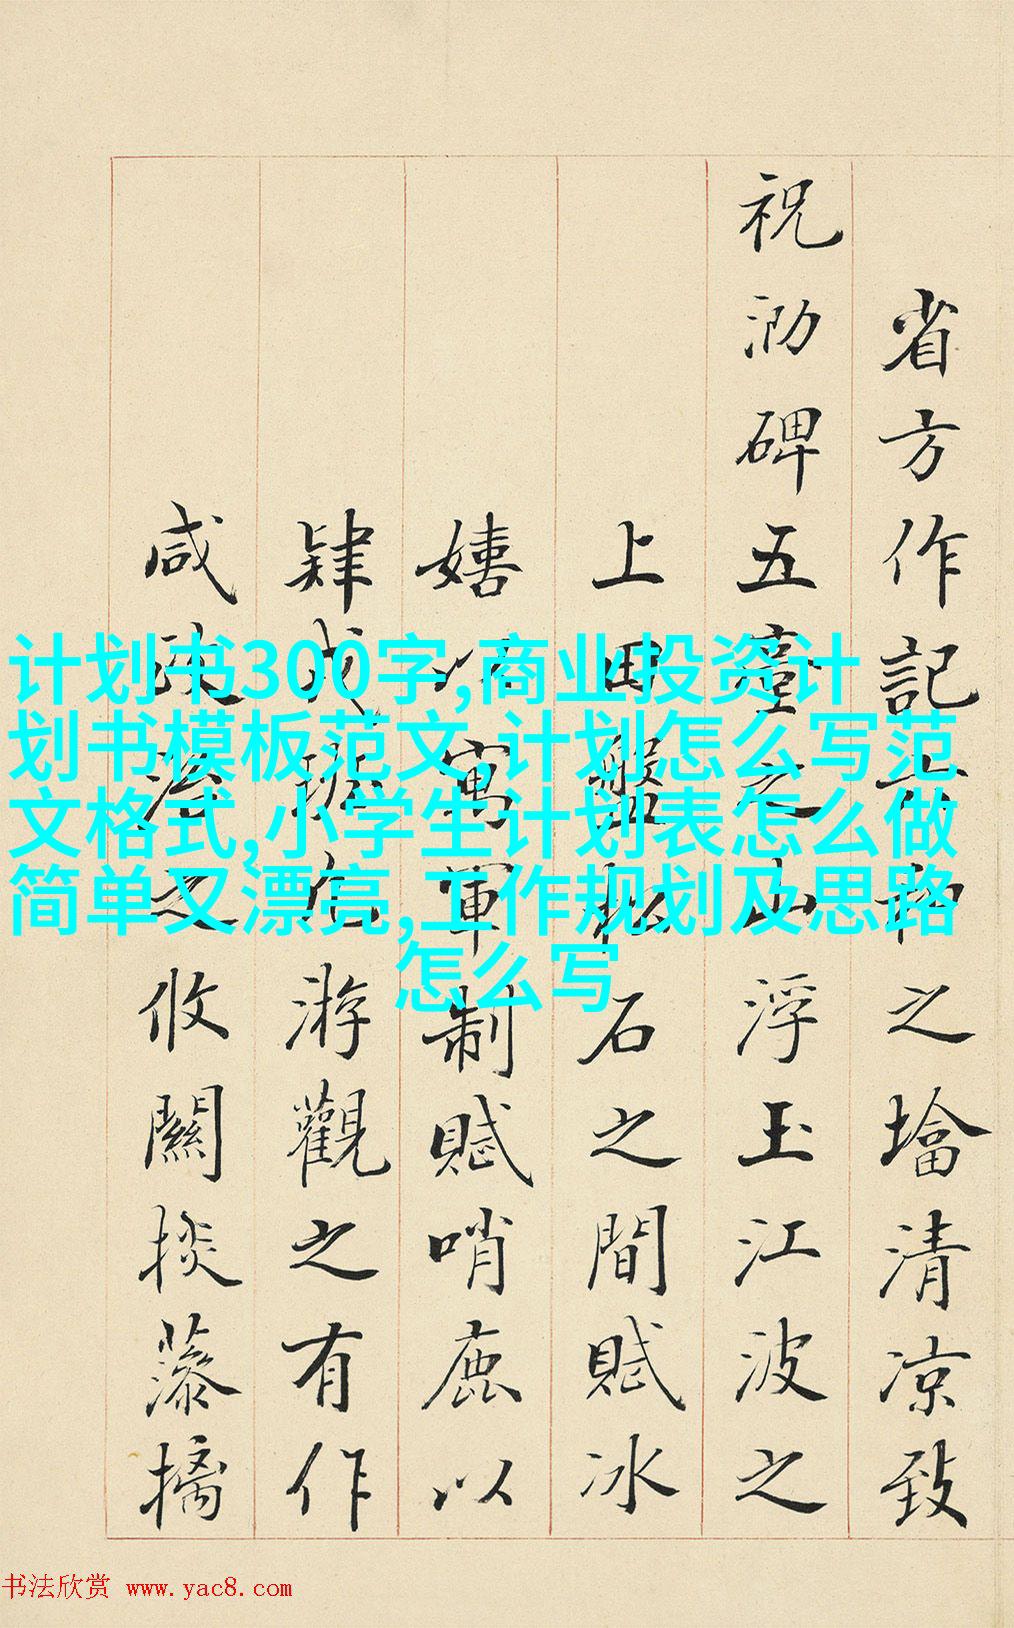 省方作記六和之墖清凉致
祝泐碑五臺之山浮玉江波之
上田盤松石之間賦冰
嬉以寓軍制賦哨鹿以
肄游觀之有作
咸之攸關掞藻摛
计划书300字,商业投资计
划书模板范文,计划怎么写范
文格式,小学生计划表怎么做
简单又漂亮,工作规划及思路
怎么写
书法欣赏 www.yac8.com